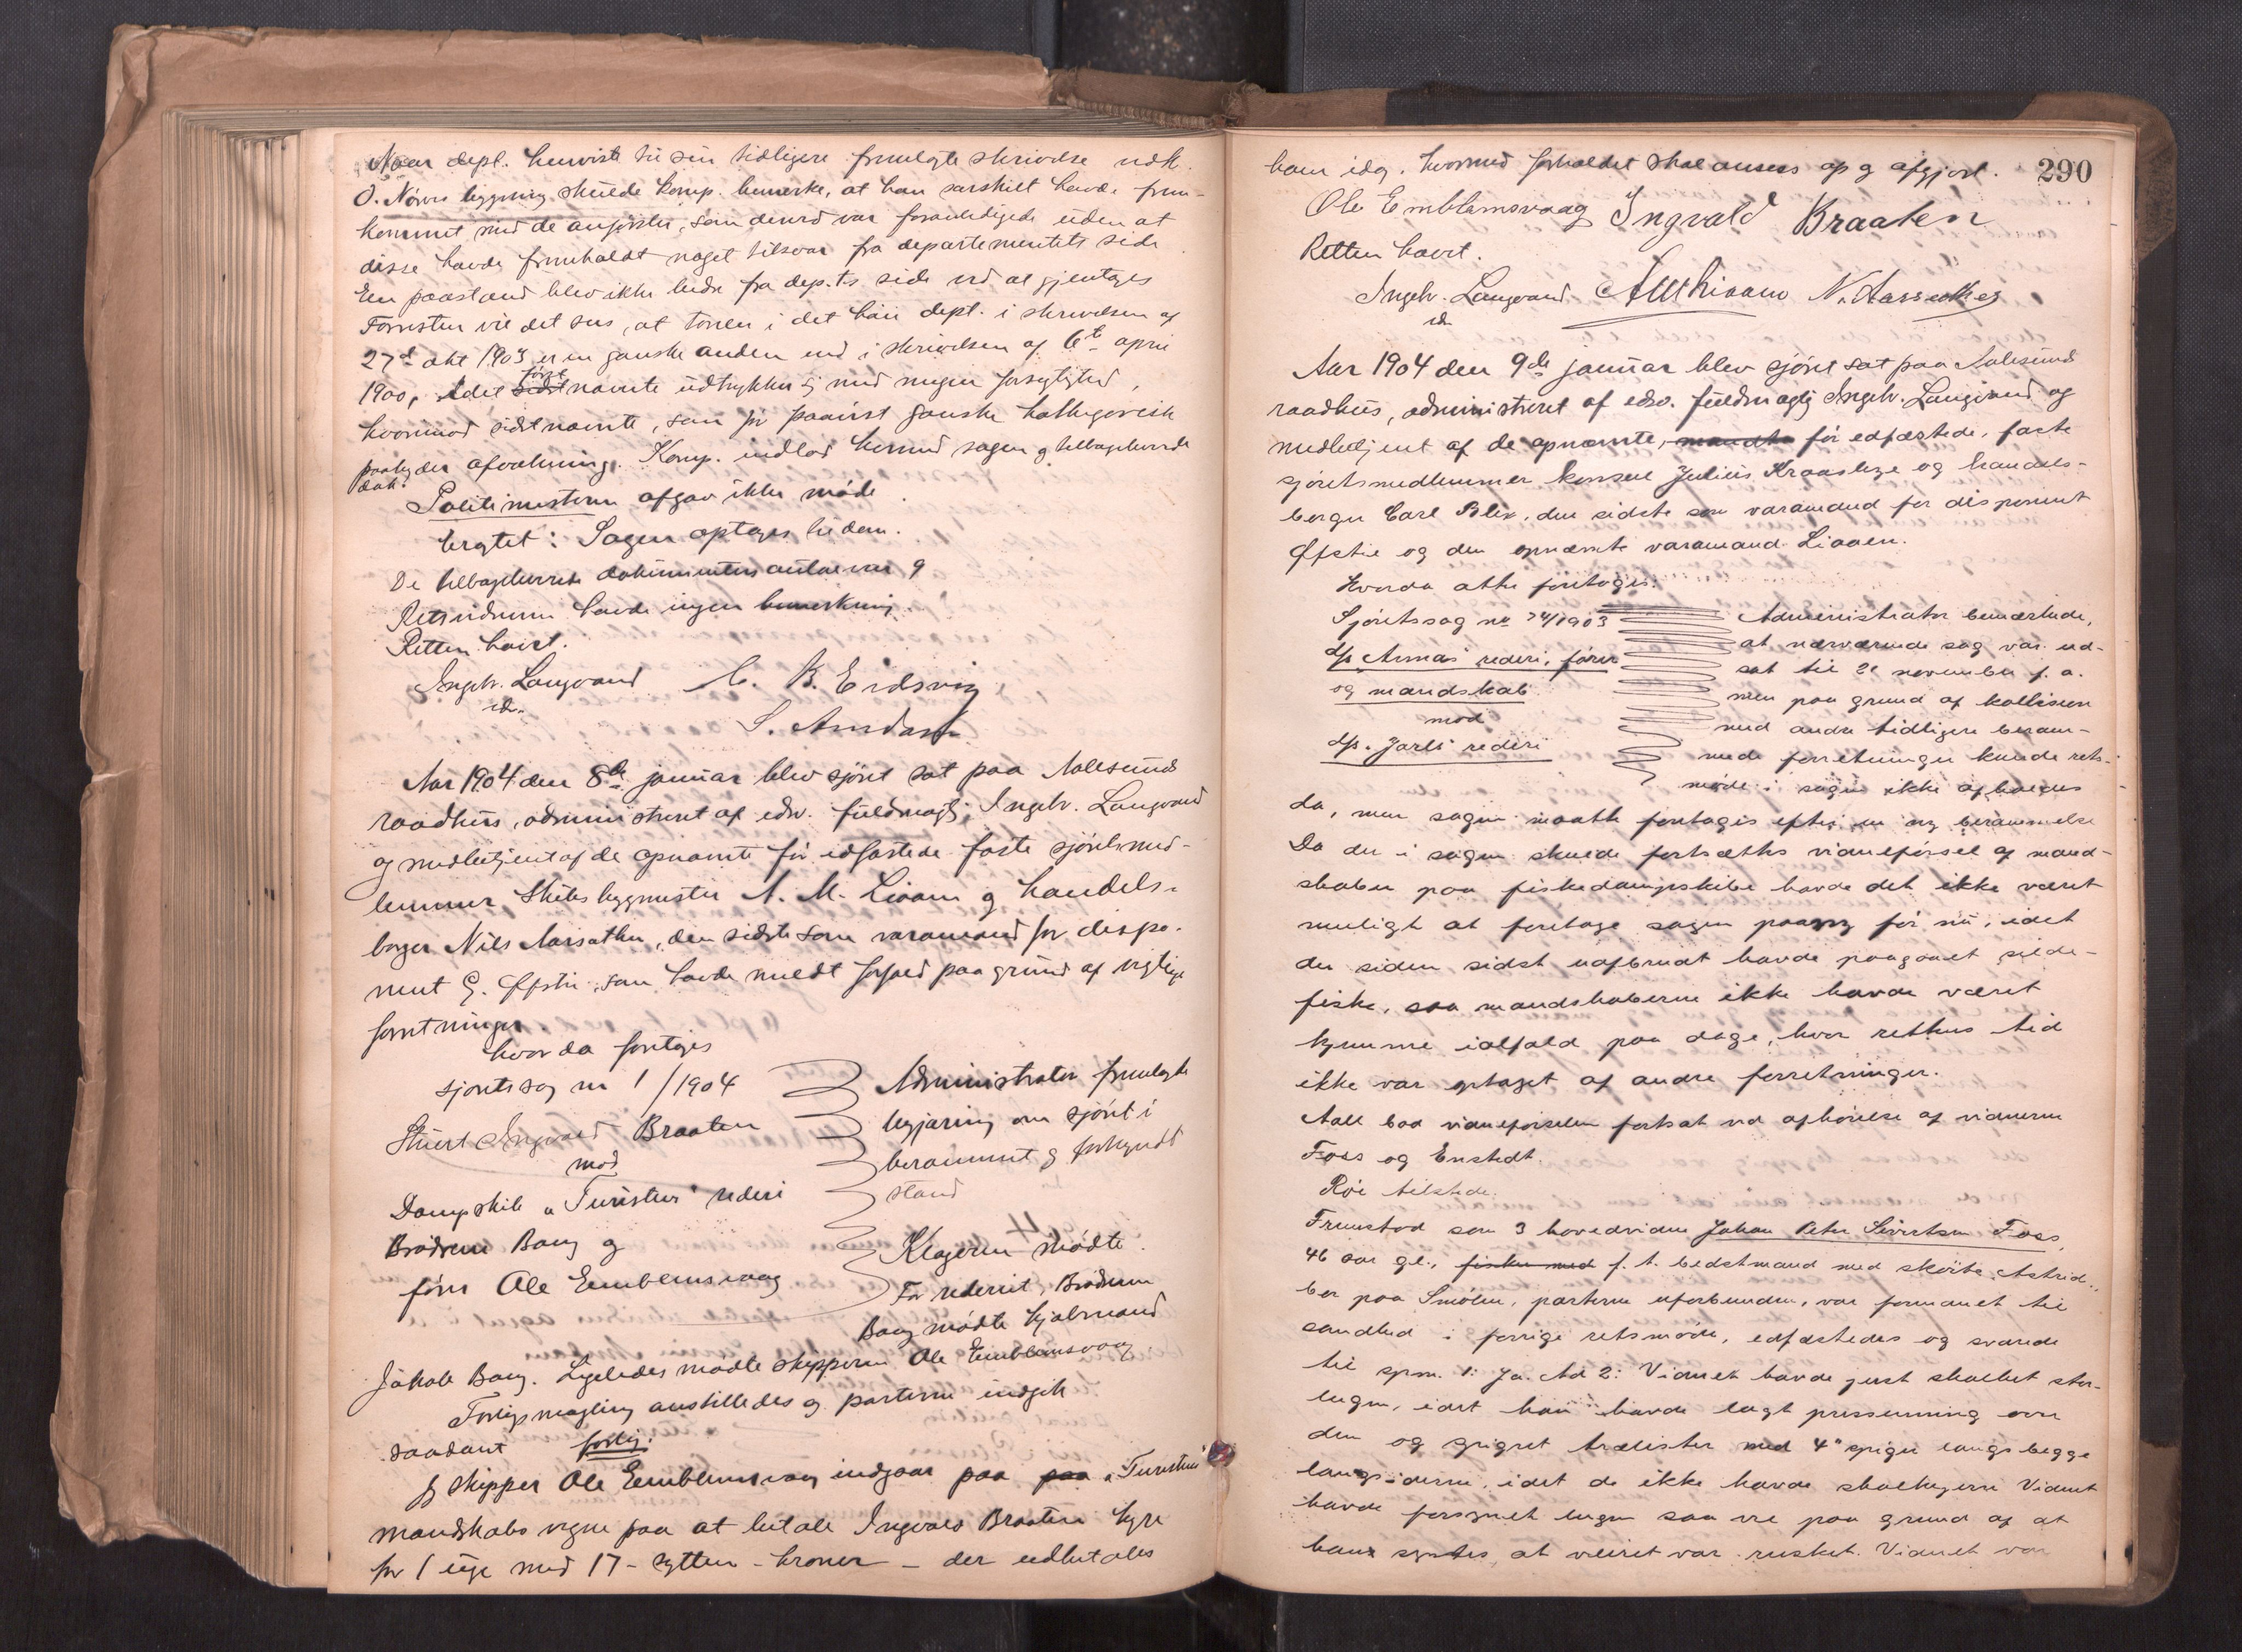 Naar dept. henviste til sin tidligere fremlagte skrivelse vedk.
O. Nörvis bygning skulde komp. bemerke, at han særskilt havde frem-
kommet med de anförsler, som derved var foranledigede uden at
disse havde fremkaldt noget tilsvar fra departementets side
En paastand blev ikke bedre fra dep.ts side ved at gjentages
Forresten vil det sees, at tonen i det hele dept. i skrivelsen af
27d okt 1903 er en ganske anden end i skrivelsen af 6te april
1900, idet förstnævnte udtrykker sig med megen forsigtighed,
hvorimod sidstnævnte, som för paavist ganske kathegorisk
paabyder afvækning. Komp. indlod hermed sagen og tilbageleverede
dok.
Politimesteren afgav ikke möde.
Bragtet: Sagen optages til dom.
De tilbageleverede dokumenters antal var 9
Retsvidnerne havde ingen bemerkning.
Retten hævet.
Ingelv. Langvand C. B. Eidsvig
edv.
S. Amdam
Aar 1904 den 8de januar blev sjöret sat paa Aalesunds
raadhus, administreret af edsv. fuldmægtig Ingelv. Langvand
og medbetjent af de opnævnte för edfæstede faste sjöretsmed-
lemmer Skibsbygmester A. M. Liaaen og handels-
borger Nils Aarsæther, den sidste som varamand for dispo-
nent G. Öfstie, som havde meldt forfald paa grund af vigtige
forretninger.
hvorda foretoges
sjöretssag nr 1/1904
Stuert Ingvald Braaten
mod
Dampskib "Turisten"s rederi
Brödrene Bang og
förer Ole Emblemsvaag
Administrator fremlagde
begjæring om sjöret i
berammet og forkyndt
stand
Klageren mödte.
For rederiet, Brödrene
Bang mödte hjelmand
Jakob Bang. Ligeledes mödte skipperen Ole Emblemsvaag
Forligsmægling anstilledes og parterne indgik
saadant forlig:
Jeg skipper Ole Emblemsvaag indgaar paa paa "Turisten"s
mandskabs vegne paa at betale Ingvald Braaten hyre
for 1 uge med 17 - sytten - kroner - der udbetales
290
ham idag. hvormed forholdet skal ansees op og afgjort.
Ole Emblemsvaag Ingvald Braaten
Retten hævet.
Ingelv. Langvand AMLiaaen N. Aarsæther
edv.
Aar 1904 den 9de januar blev sjöret sat paa Aalesunds
raadhus, administreret af edsv. fuldmægtig Ingelv. Langvand og
medbetjent af de opnævnte, för edfæstede, faste
sjöretsmedlemmer konsul Julius Kraasbye og handels-
borger Carl Blix, den sidste som varamand for disponent
Öfstie og den opnævnte varamand Liaaen.
Hvorda atter foretoges:
Sjöretssag nr 24/1903
d/s "Anna"s rederi, förer
og mandskab
mod
d/s. "Jarl"s rederi
Administrator bemærkede,
at nærværende sag var ud-
sat til 21 november f. a.
men paa grund af kollision
med andre tidligere beram-
mede forretninger kunde rets-
möde i sagen ikke afholdes
da, men sagen maatte foretages efter en ny berammelse
Da der i sagen skulde fortsættes vidneförsel af mand-
skaber paa fiskedampskibe havde det ikke været
muligt at foretage sagen paany för nu, idet
der siden sidst uafbrudt havde paagaaet silde-
fiske, saa mandskaberne ikke havde været
hjemme ialfald paa dage, hvor rettens tid
ikke var optaget af andre forretninger.
Aall bad vidneförselen fortsat ved afhörelse af vidnerne
Foss og Enstedt.
Röe tilstede.
Fremstod som 3 hovedvidne Johan Peter Sivertsen Foss,
46 aar gl., fisker med f. t. bedstmand med sköite "Astrid",
bor paa Smölen, parterne uforbunden, var formanet til
sandhed i forrige retsmöde, edfæstedes og svarede
til spm. 1: Ja. Ad 2: Vidnet havde just skalket stor-
lugen, idet han havde lagt pressenning over
den og spigret trælister med 4" spiger langs begge
langsiderne, idet de ikke havde skalkejern Vidnet
havde forsynet lugen saa vel paa grund af at
han syntes, at veiret var rusket. Vidnet var